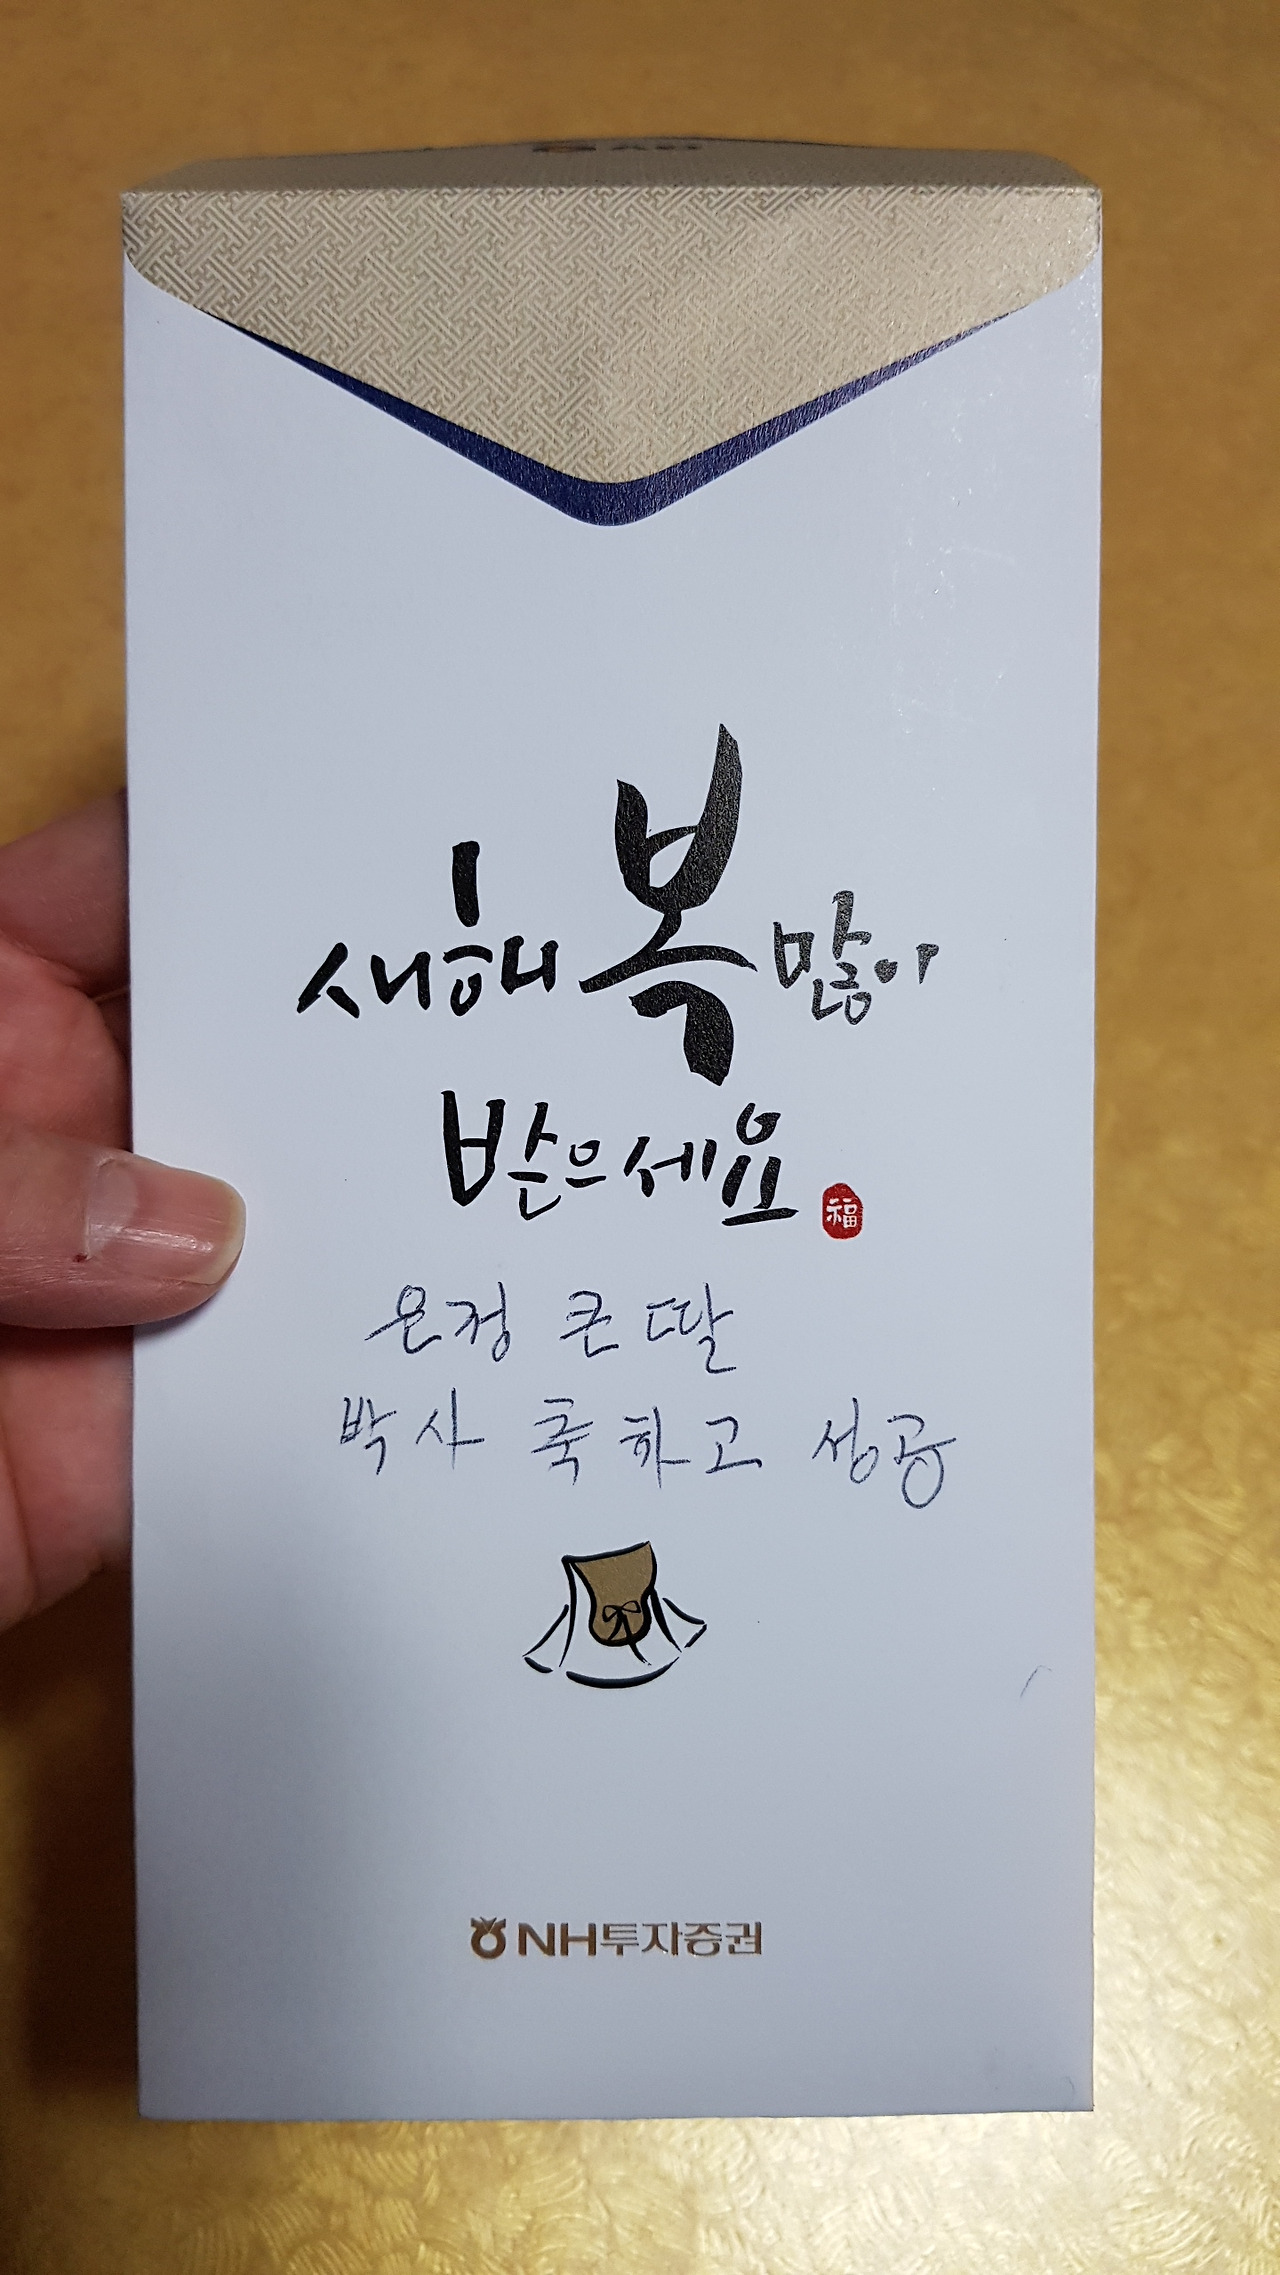 새해 복 많이
받으세요
福
은정 큰 딸
박사 축하고 성공
NH투자증권